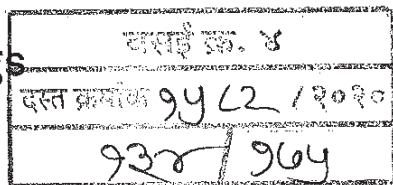 S
वसई क्र. ४
दस्त क्रमांक १५८२ / २०१०
१३४ / १७५